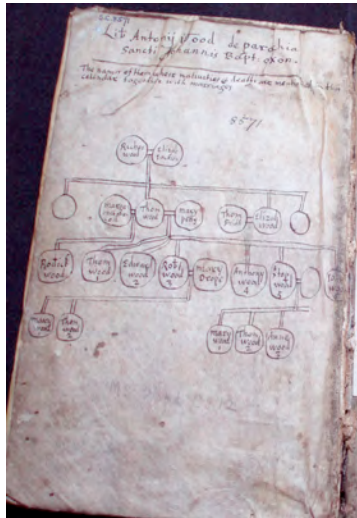 S.C. 8571
Lib Antonij Wood de parochia
Sancti Johannis Bapt. oxon.
The names of them whose nativities & death are mentioned in this
calendar togeather with marriages
8571
Rich wood
Elizab
Thom wood
mary petty
Thom
Elizab wood
Robert wood
Thom wood 1
Edward wood 2
Robt wood 3
Mary Drope
Anthony wood 4
wood 5
mary wood
Thom wood 2
mary wood 1
Thom wood 2
wood